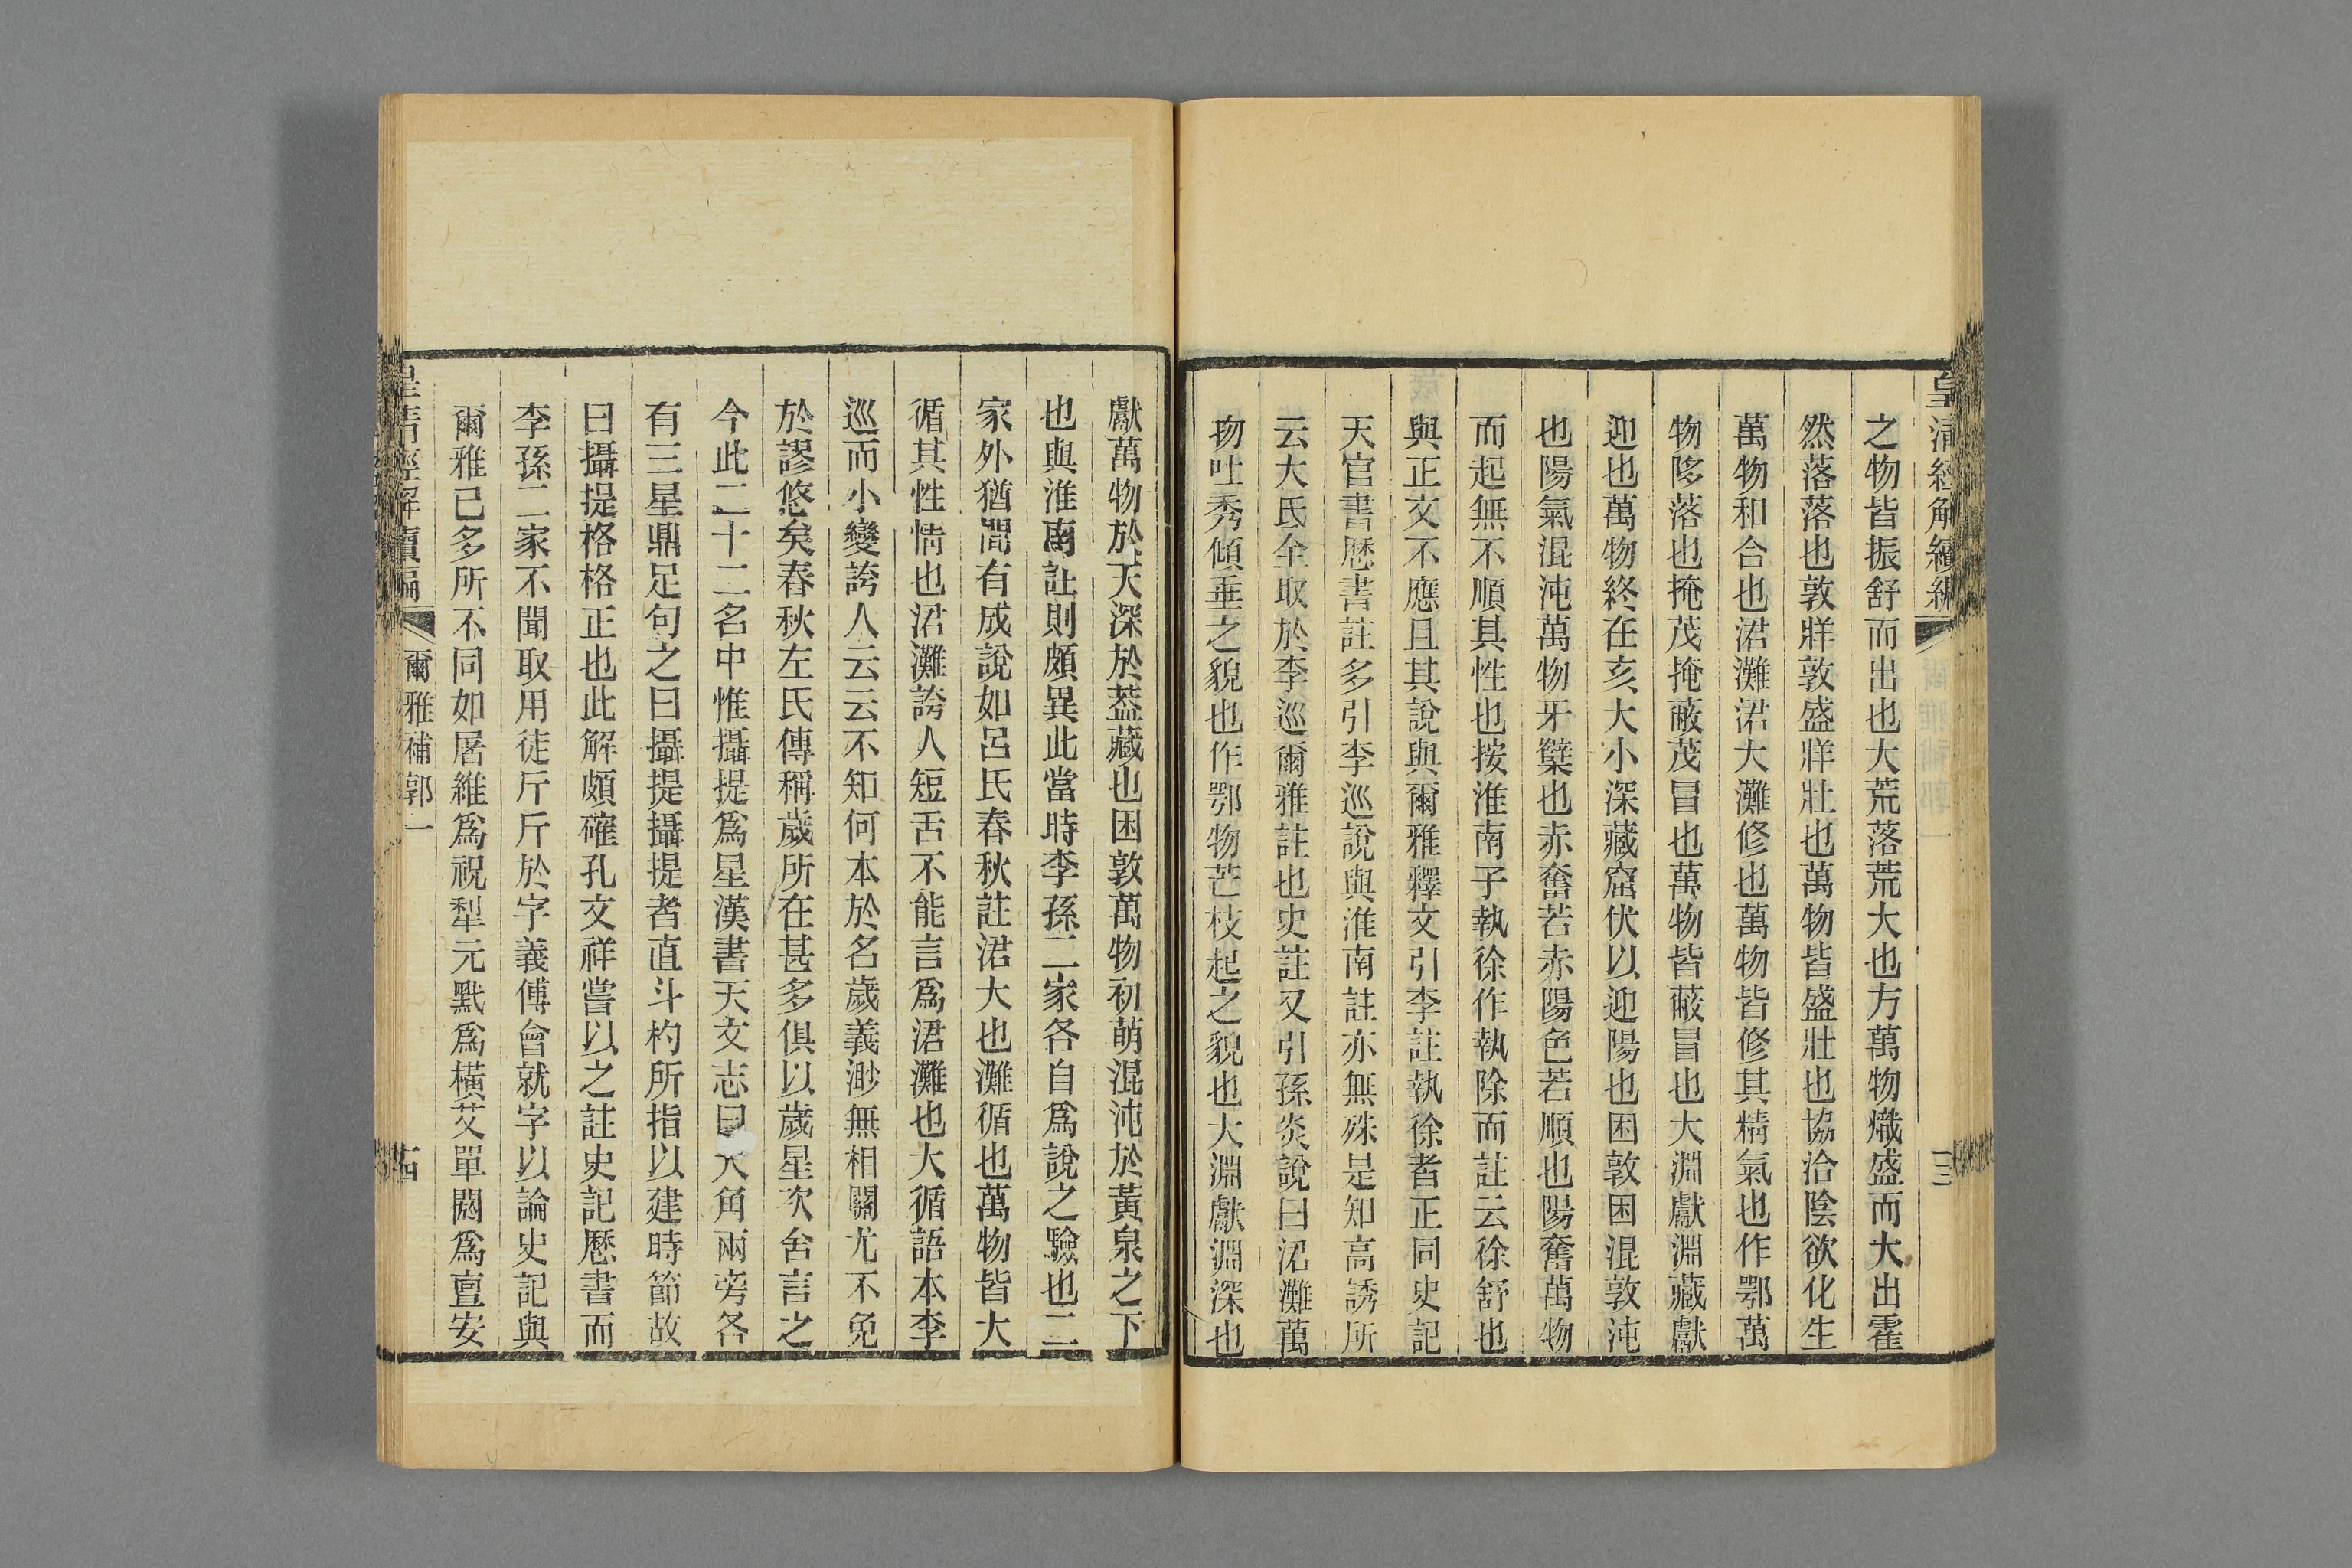 皇清經解續編
三
之物皆振舒而出也大荒落荒大也方萬物熾盛而大出霍
然落落也敦牂敦盛牂壯也萬物皆盛壯也協洽陰欲化生
萬物和合也涒灘涒大灘修也萬物皆修其精氣也作鄂萬
物陊落也掩茂掩蔽茂冒也萬物皆蔽冒也大淵獻淵藏獻
迎也萬物終在亥大小深藏窟伏以迎陽也困敦困混敦沌
也陽氣混沌萬物牙櫱也赤奮若赤陽色若順也陽奮萬物
而起無不順其性也按淮南子執徐作執除而註云徐舒也
與正文不應且其說與爾雅釋文引李註執徐者正同史記
天官書厯書註多引李巡說與淮南註亦無殊是知高誘所
云大氐全取於李巡爾雅註也史註又引孫炎說曰涒灘萬
物吐秀傾垂之貌也作鄂物芒枝起之貌也大淵獻淵深也
獻萬物於天深於葢藏也困敦萬物初萌混沌於黃泉之下
也與淮南註則頗異此當時李孫二家各自爲說之驗也二
家外猶閒有成說如呂氏春秋註涒大也灘循也萬物皆大
循其性情也涒灘誇人短舌不能言爲涒灘也大循語本李
巡而小變誇人云云不知何本於名歲義渺無相關尤不免
於謬悠矣春秋左氏傳稱歲所在甚多俱以歲星次舍言之
今此二十二名中惟攝提爲星漢書天文志曰大角兩旁各
有三星鼎足句之曰攝提攝提者直斗杓所指以建時節故
曰攝提格格正也此解頗確孔文祥嘗以之註史記厯書而
李孫二家不聞取用徒斤斤於字義傅會就字以論史記與
爾雅已多所不同如屠維爲祝犁元黓爲橫艾單閼爲亶安
皇清經解續編
爾雅補郭一
十四